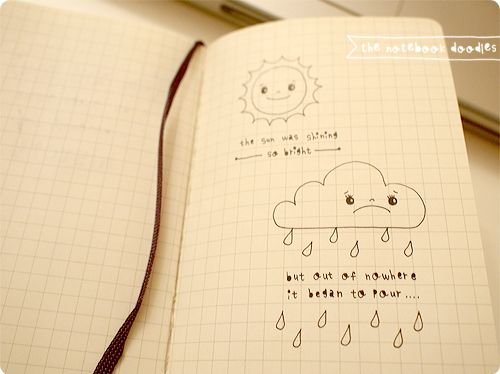 the notebook doodles
the sun was shining
so bright
but out of nowhere
it began to pour....